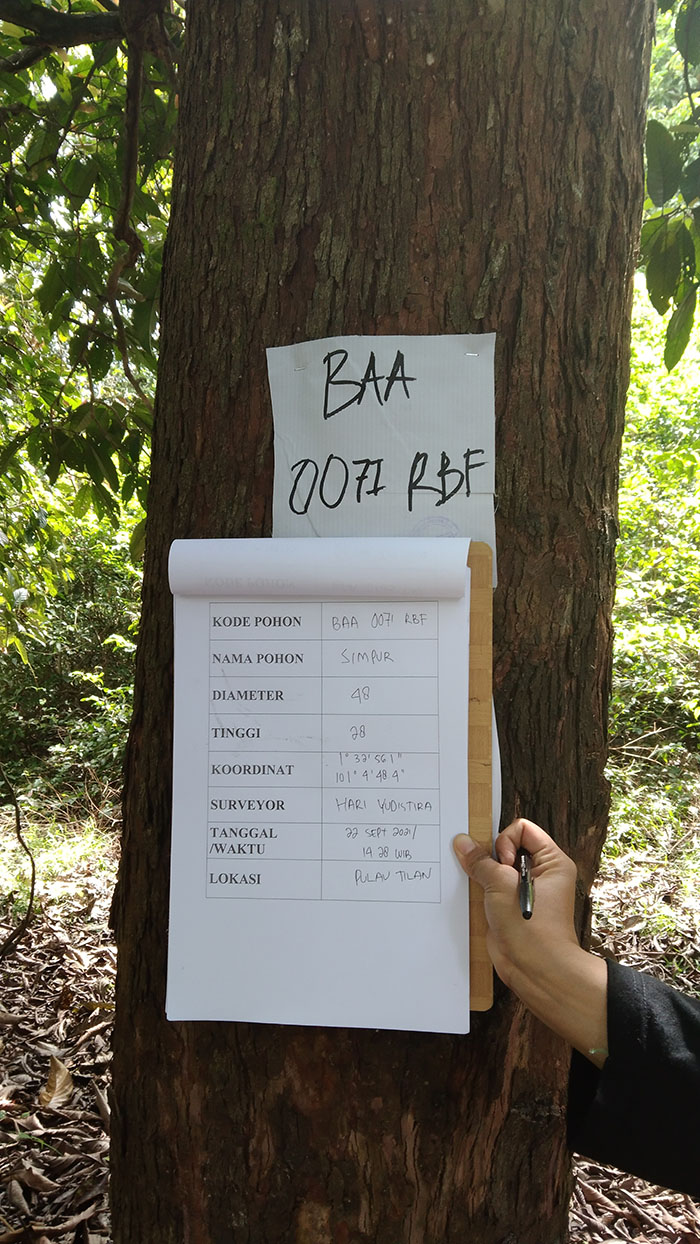 BAA
0071 RBF
KODE POHON BAA 0071 RBF
NAMA POHON SIMPUR
DIAMETER 48
TINGGI 28
KOORDINAT 1° 32' 56 1"
101° 4' 48 4"
SURVEYOR HARI YUDISTIRA
TANGGAL 22 SEPT 2021/
/WAKTU 14 28 WIB
LOKASI PULAU TILAN